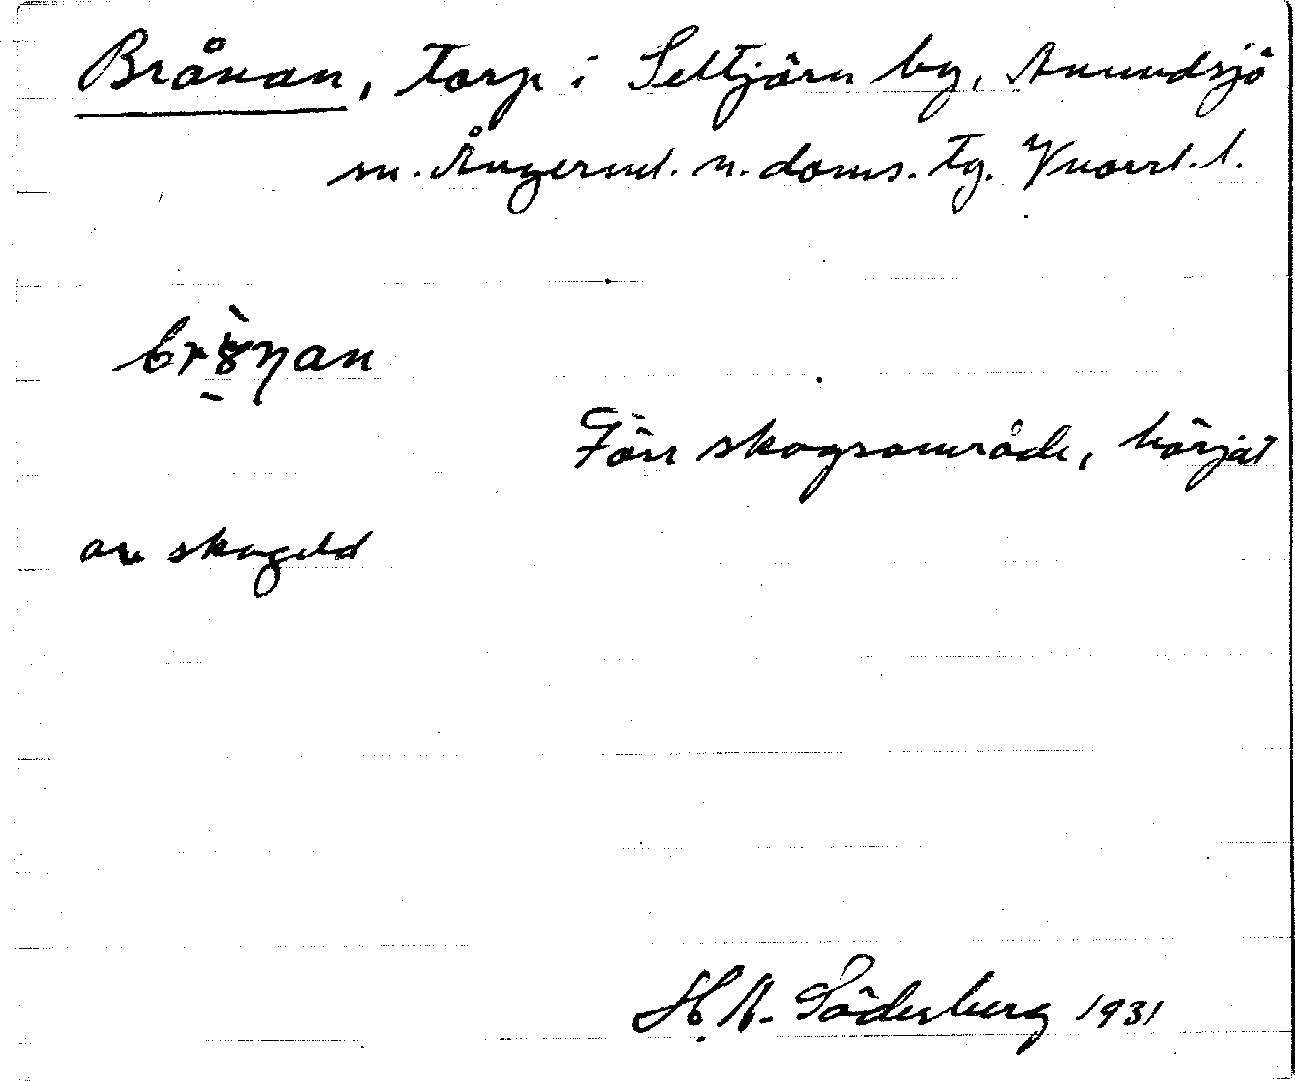 Brånan, torp i Seltjärn by, Anundsjö
sn. Ångerml. n. doms. tg. Vnorrl. l.
Förr skogsområde, härjat
av skogeld
H. A. Söderberg 1931